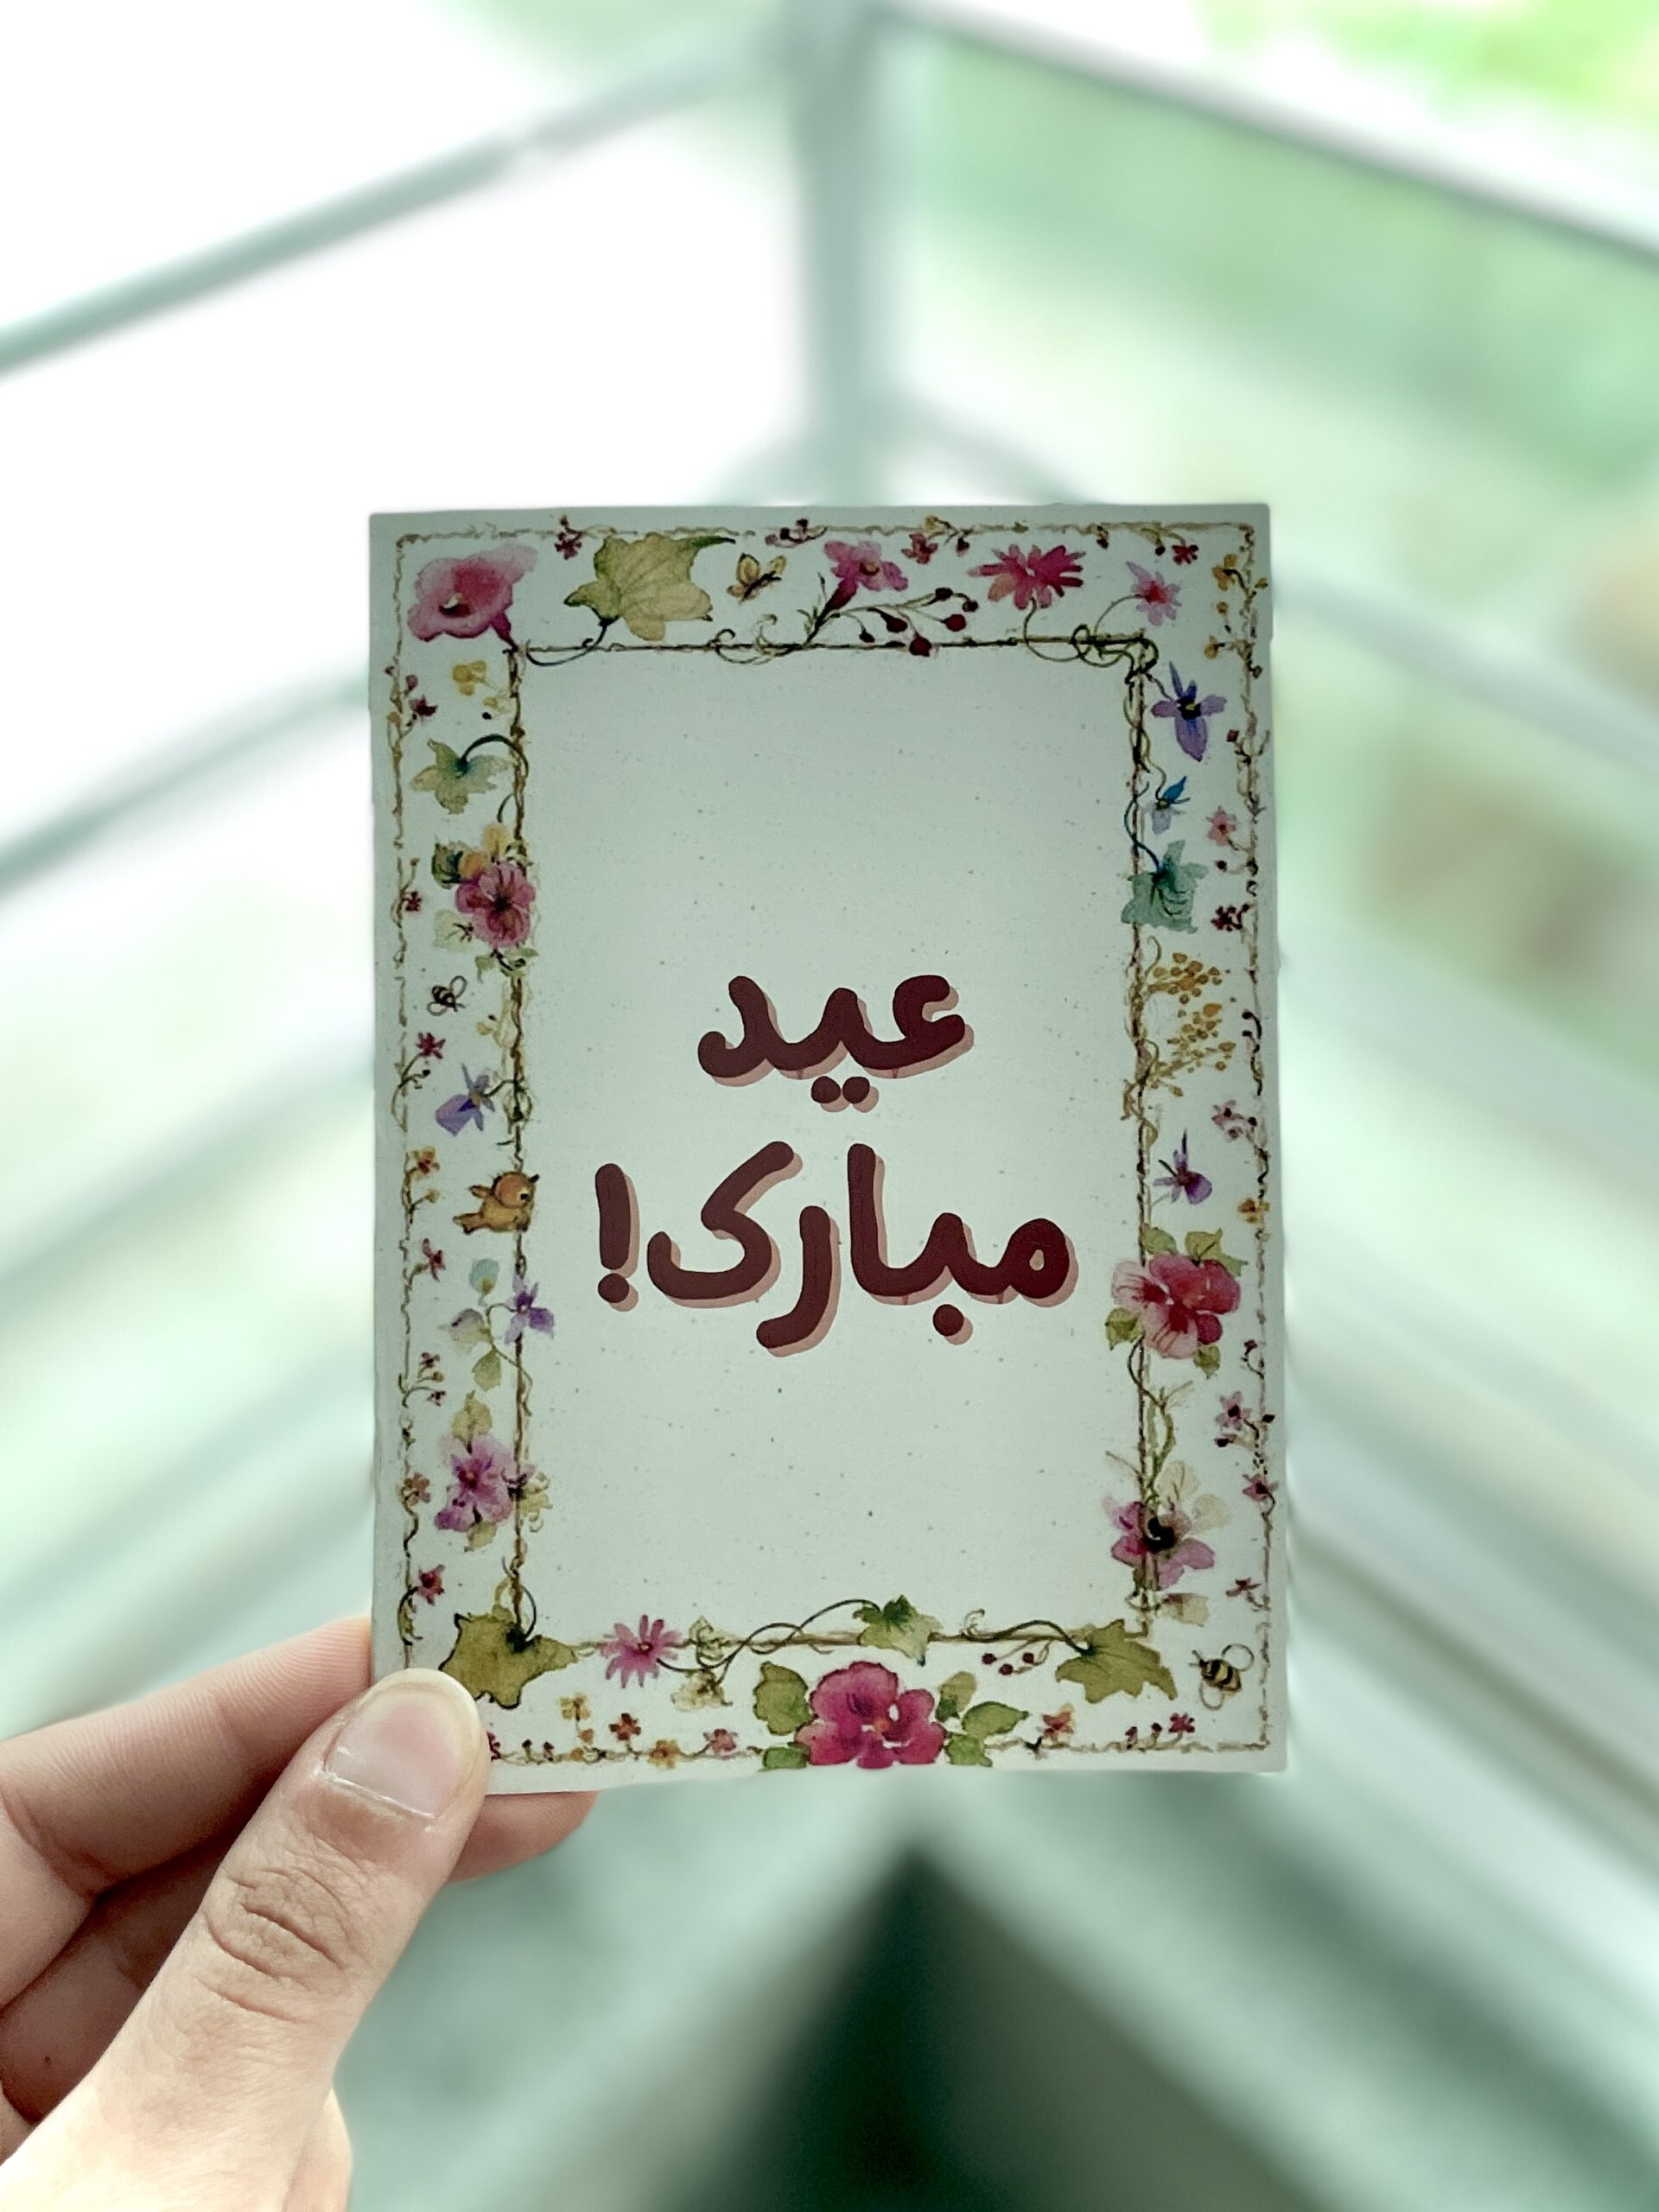 عید
مبارک!